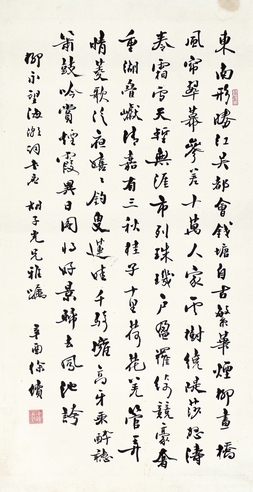 東南形勝江吳都會錢塘自古繁華煙柳畫橋
風帘翠幕參差十萬人家雲樹繞隄沙怒濤
卷霜雪天塹無涯市列珠璣戶盈羅綺競豪奢
重湖疊巘清嘉有三秋桂子十里荷花羌管弄
晴菱歌泛夜嬉嬉釣叟蓮娃千騎擁高牙乘醉聽
簫鼓吟賞煙霞異日圖將好景歸去鳳池誇
柳永望海潮詞書 胡子光兄雅囑 辛酉 徐